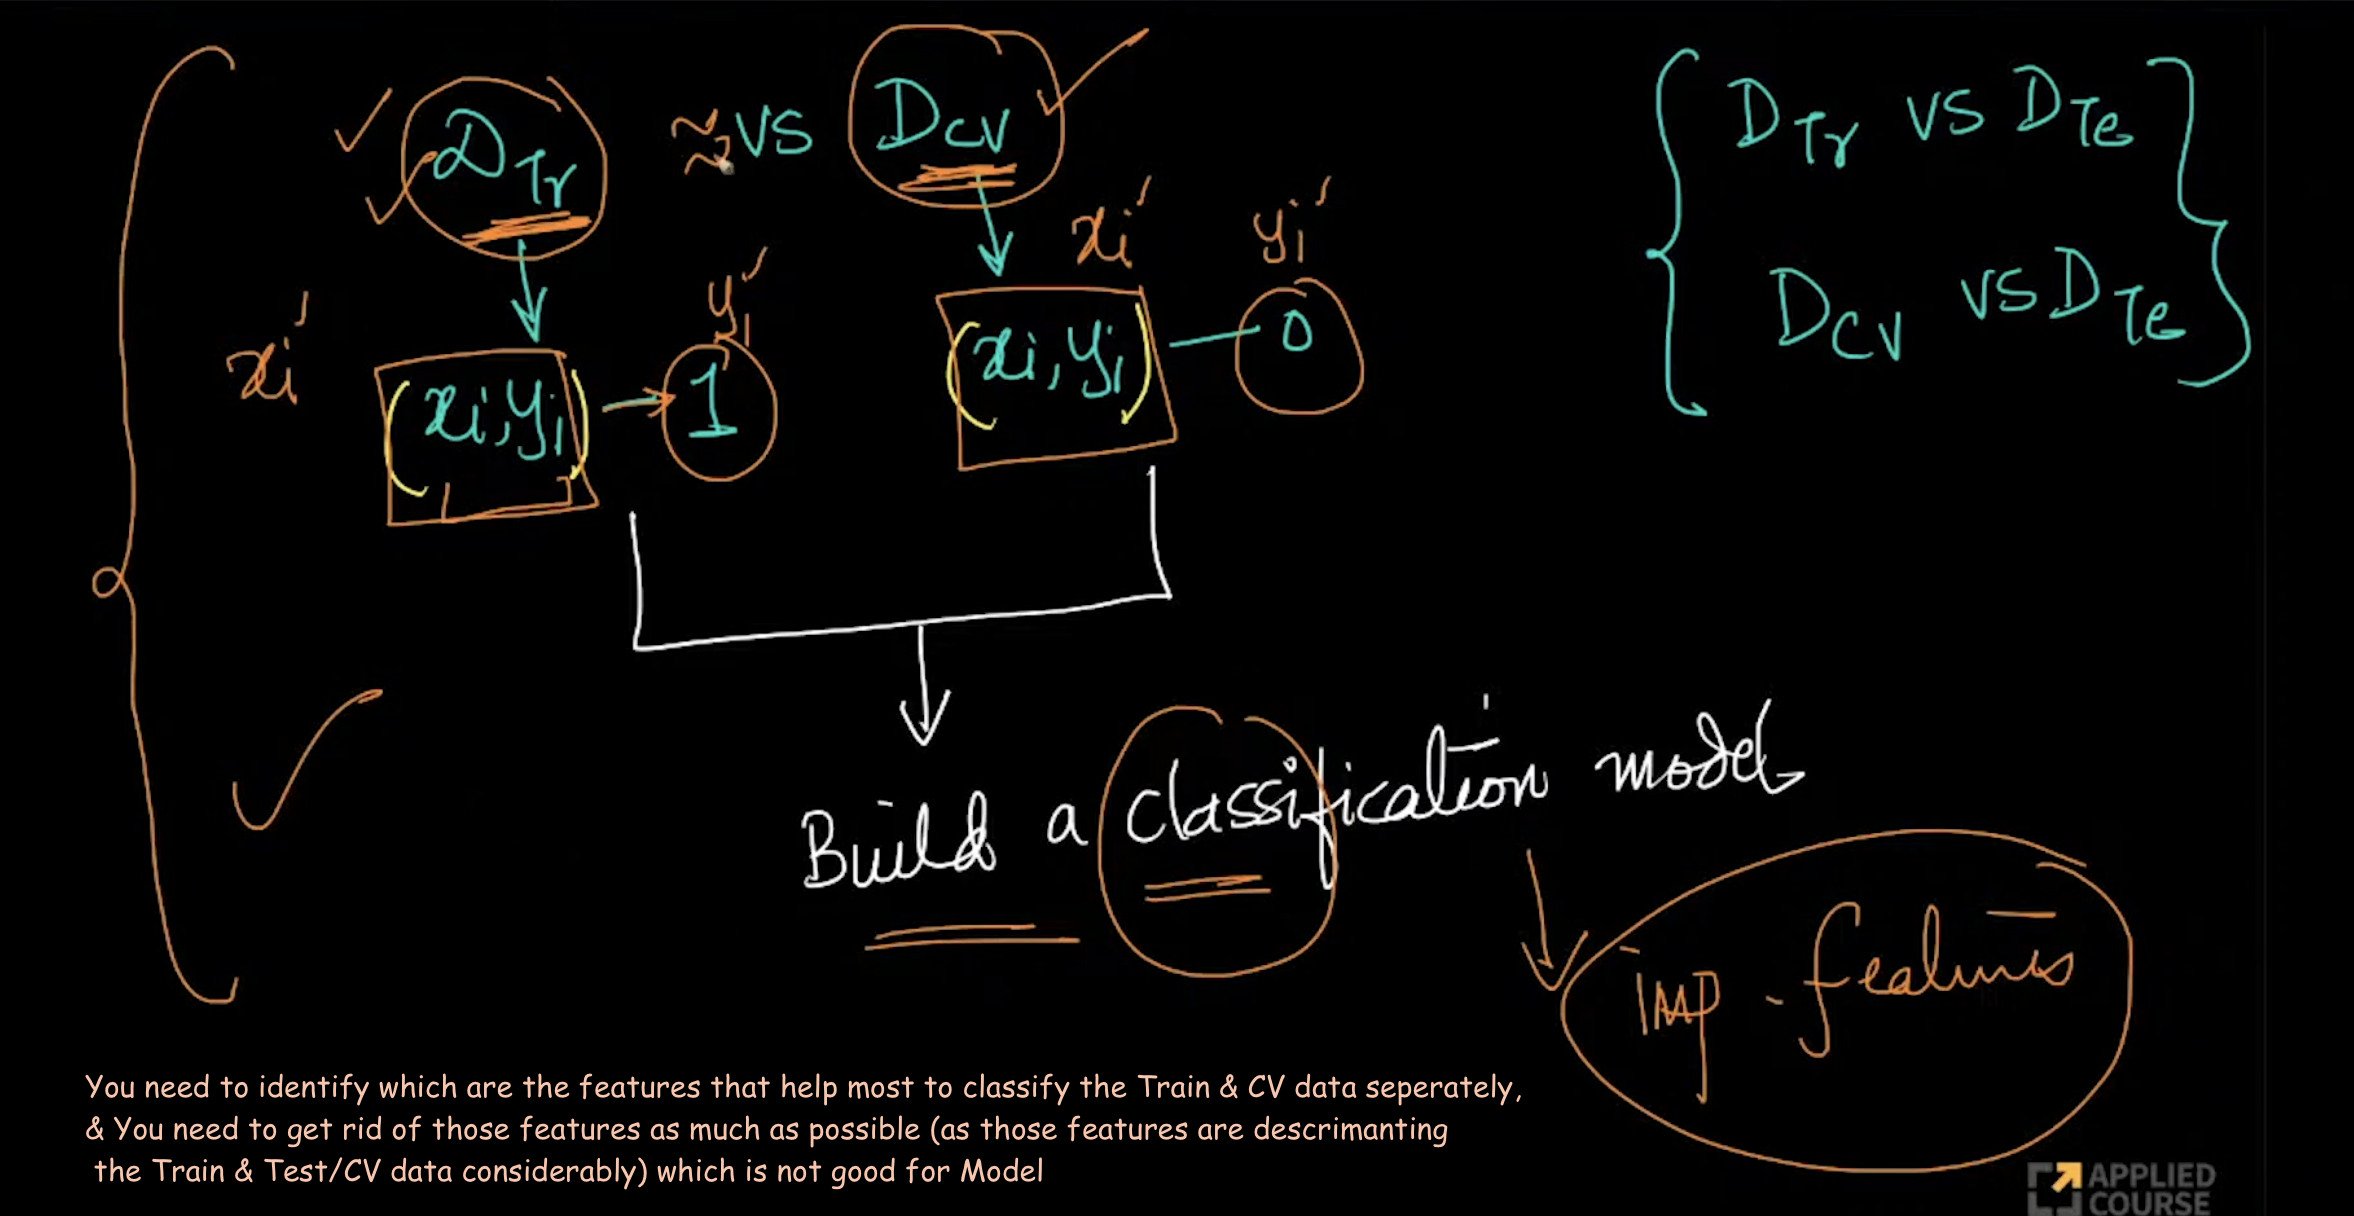 D_Tr ≈ VS D_CV
D_Tr VS D_Te
D_CV VS D_Te
xi' yi'
xi' yi'
(xi, yi) → 1
(xi, yi) — 0
Build a classification model
imp - features
You need to identify which are the features that help most to classify the Train & CV data seperately,
& You need to get rid of those features as much as possible (as those features are descrimanting
the Train & Test/CV data considerably) which is not good for Model
APPLIED
COURSE